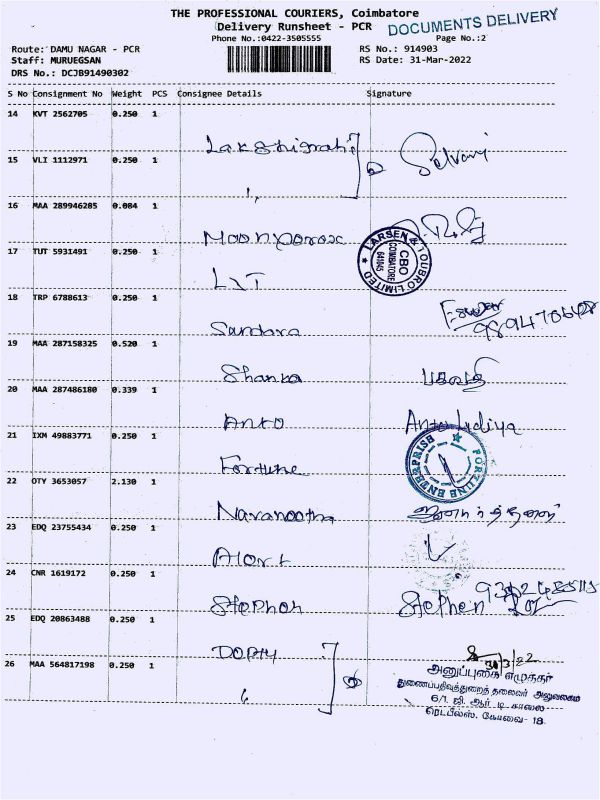 THE PROFESSIONAL COURIERS, Coimbatore
DOCUMENTS DELIVERY
Delivery Runsheet - PCR
Phone No.:0422-3505555
Page No.:2
Route: DAMU NAGAR - PCR
RS No.: 914903
Staff: MURUEGSAN
RS Date: 31-Mar-2022
DRS No.: DCJB91490302
S No Consignment No Weight PCS Consignee Details Signature
14 KVT 2562705 0.250 1
15 VLI 1112971 0.250 1
Selvani
16 MAA 289946285 0.084 1
17 TUT 5931491 0.250 1
LARSEN & TOUBRO LIMITED
CBO
COIMBATORE
641045
L&T
18 TRP 6788613 0.250 1
Eswar
Sundara
19 MAA 287158325 0.520 1
Shanka
20 MAA 287486180 0.339 1
Anto
Anto Lidiya
21 IXM 49883771 0.250 1
FORTUNE ENTERPRISE
Fortune
22 OTY 3653057 2.130 1
23 EDQ 23755434 0.250 1
Alert
24 CNR 1619172 0.250 1
Stephen
Stephen
25 EDQ 20863488 0.250 1
26 MAA 564817198 0.250 1
அனுப்புகை எழுத்தர்
துணைப்பதிவுத்துறைத் தலைவர் அலுவலகம்
6/1, ஜி. ஆர் டி காலை
ரெடபீல்ஸ், கோவை- 18.